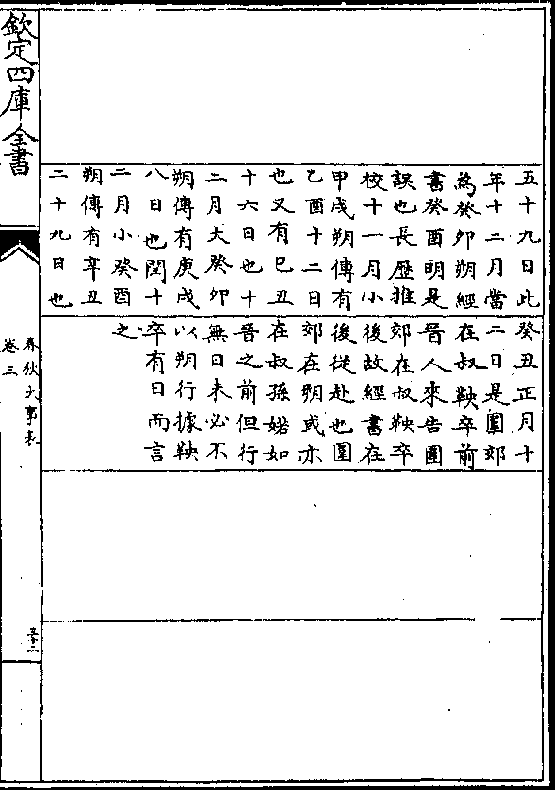 五十九日此
年十二月當
為癸卯朔經
書癸酉明是
誤也長歴推
校十一月小
甲戌朔傳有
乙酉十二日
也又有巳丑
十六日也十
二月大癸卯
朔傳有庚戌
八日也閏十
二月小癸酉
朔傳有辛丑
二十九日也
癸丑正月十
二日是圍郊
在叔鞅卒前
晉人來告圍
郊在叔鞅卒
後故經書在
後從赴也圍
郊在朔或亦
在叔孫婼如
晉之前但行
無日未必不
以朔行據鞅
卒有日而言
之
欽定四庫全書
春秋大事表
卷三